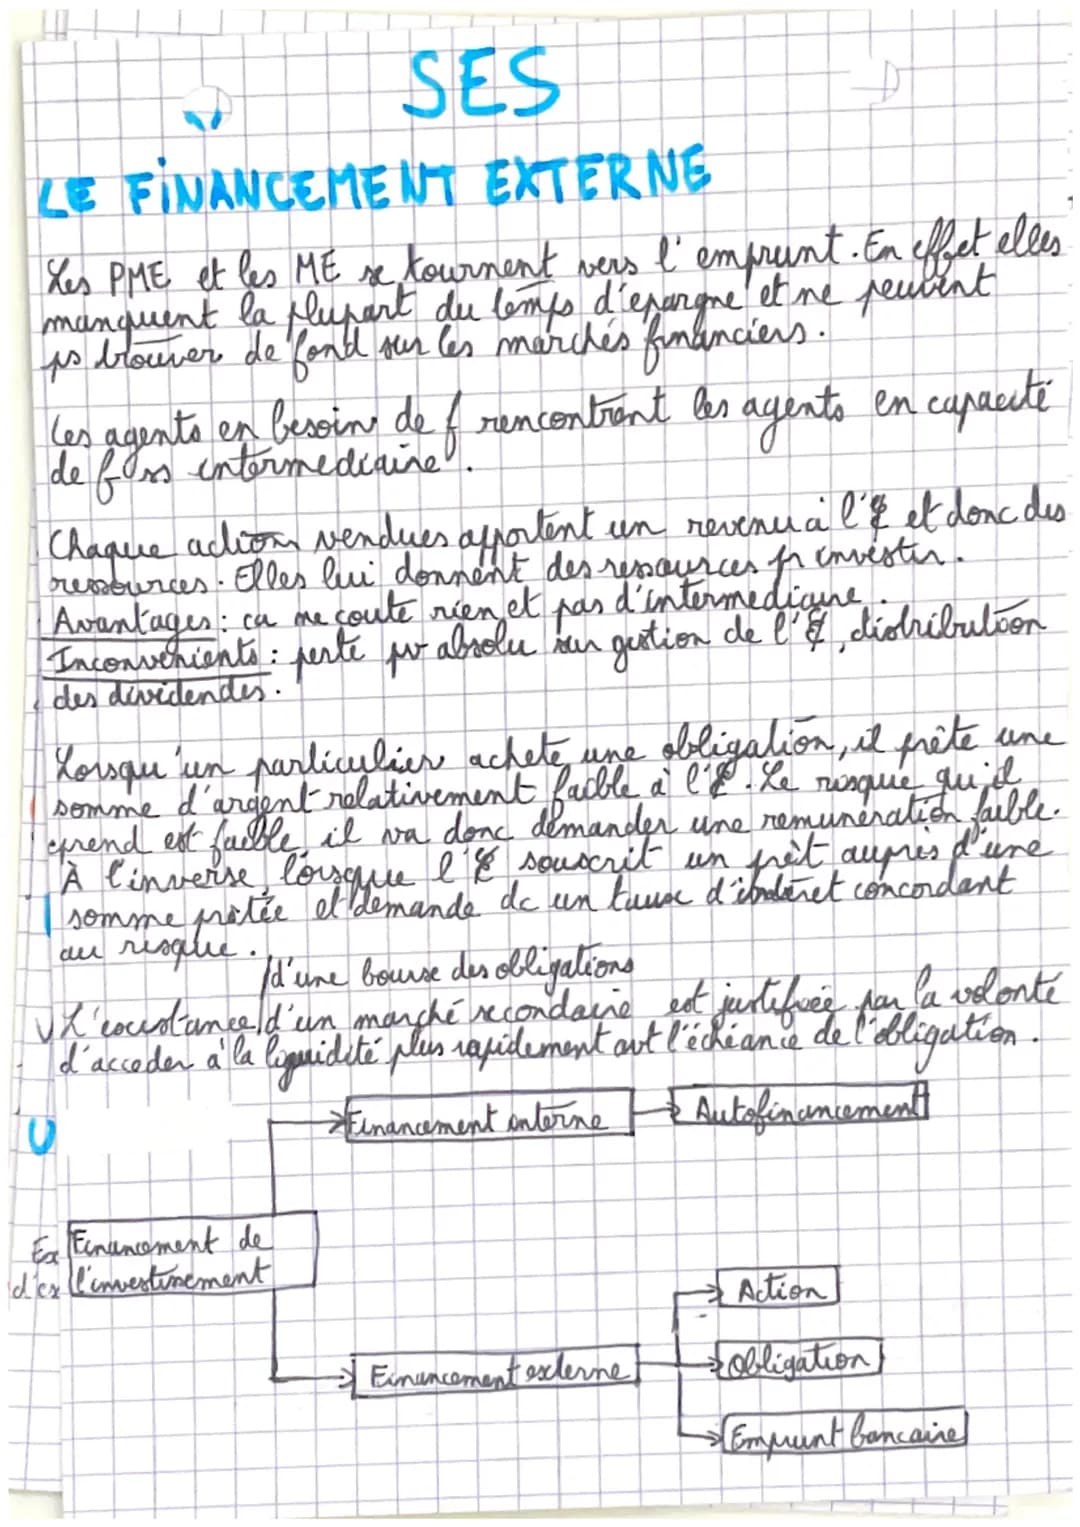 SES
LE FINANCEMENT EXTERNE
Les PME et les ME se tournent vers l'emprunt. En effet elles
manquent la plupart du temps d'epargne et ne peuvent
ps trouver de fond sur les marchés financiers.
Les agents en besoins de f rencontrent les agents en capacité
de f ss intermediaire.
Chaque action vendues apportent un revenu à l'E et donc des
ressources. Elles lui donnent des ressources pr investir.
Avantages : ca ne coute rien et pas d'intermediaire.
Inconvenients : perte pv absolu sur gestion de l'E, distribution
des dividendes.
Lorsqu'un particulier achete une obligation, il prête une
somme d'argent relativement faible à l'E. Le risque qu'il
prend est faible, il va donc demander une remuneration faible.
À l'inverse, lorsque l'E souscrit un prêt auprès d'une
somme prêtée et demande dc un taux d'intêret concordant
au risque.
/d'une bourse des obligations
L'existance/d'un marché secondaire est justifiée par la volonté
d'acceder à la liquidité plus rapidement avt l'échéance de l'obligation.
Financement interne
Autofinancement
Ex
d'ex
Financement de
l'investissement
Action
Obligation
Financement externe
Emprunt bancaire